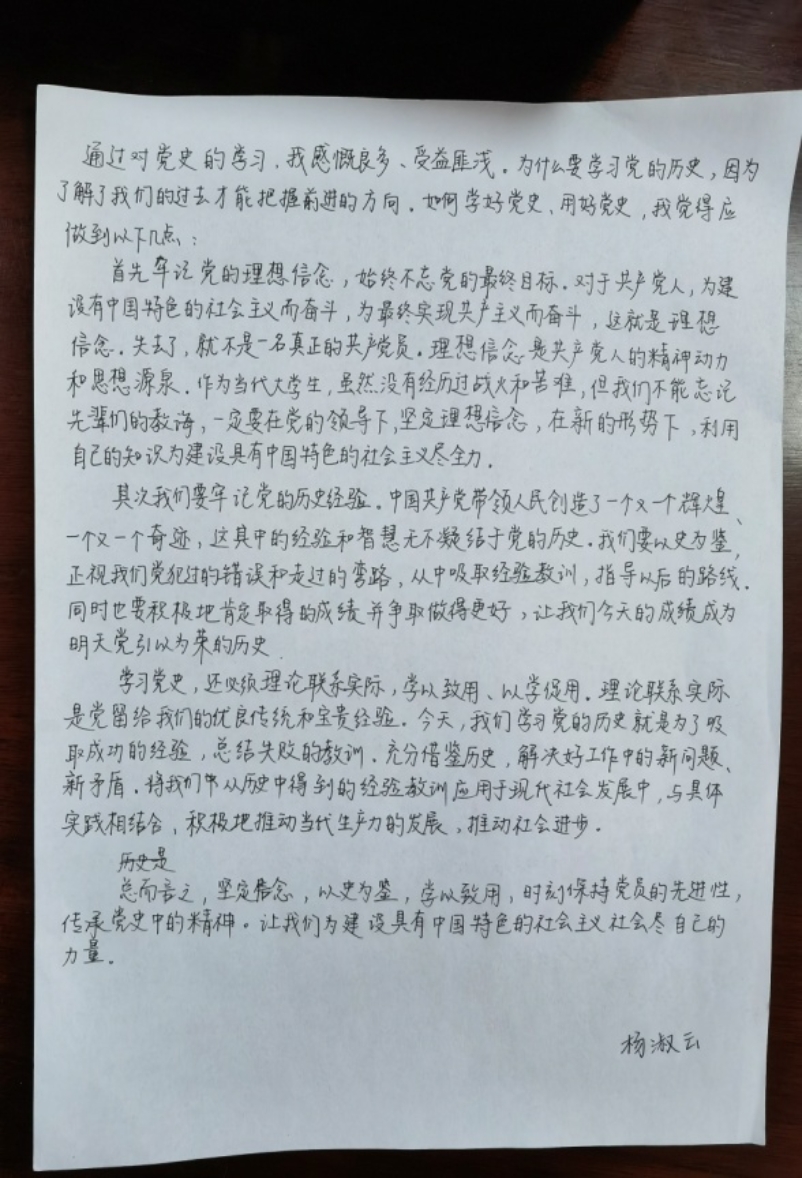 通过对党史的学习,我感慨良多、受益匪浅。为什么要学习党的历史,因为
了解了我们的过去才能把握前进的方向。如何学好党史、用好党史,我觉得应
做到以下几点:
首先牢记党的理想信念,始终不忘党的最终目标。对于共产党人,为建
设有中国特色的社会主义而奋斗,为最终实现共产主义而奋斗,这就是理想
信念。失去了,就不是一名真正的共产党员。理想信念是共产党人的精神动力
和思想源泉。作为当代大学生,虽然没有经历过战火和苦难,但我们不能忘记
先辈们的教诲,一定要在党的领导下,坚定理想信念,在新的形势下,利用
自己的知识为建设具有中国特色的社会主义尽全力.
其次我们要牢记党的历史经验。中国共产党带领人民创造了一个又一个辉煌、
一个又一个奇迹,这其中的经验和智慧无不凝结于党的历史。我们要以史为鉴,
正视我们党犯过的错误和走过的弯路,从中吸取经验教训,指导以后的路线.
同时也要积极地肯定取得的成绩并争取做得更好,让我们今天的成绩成为
明天党引以为荣的历史.
学习党史,还必须理论联系实际,学以致用、以学促用。理论联系实际
是党留给我们的优良传统和宝贵经验。今天,我们学习党的历史就是为了吸
取成功的经验,总结失败的教训。充分借鉴历史,解决好工作中的新问题、
新矛盾。将我们中从历史中得到的经验教训应用于现代社会发展中,与具体
实践相结合,积极地推动当代生产力的发展、推动社会进步。
历史是
总而言之,坚定信念,以史为鉴,学以致用,时刻保持党员的先进性,
传承党史中的精神。让我们为建设具有中国特色的社会主义社会尽自己的
力量.
杨淑云